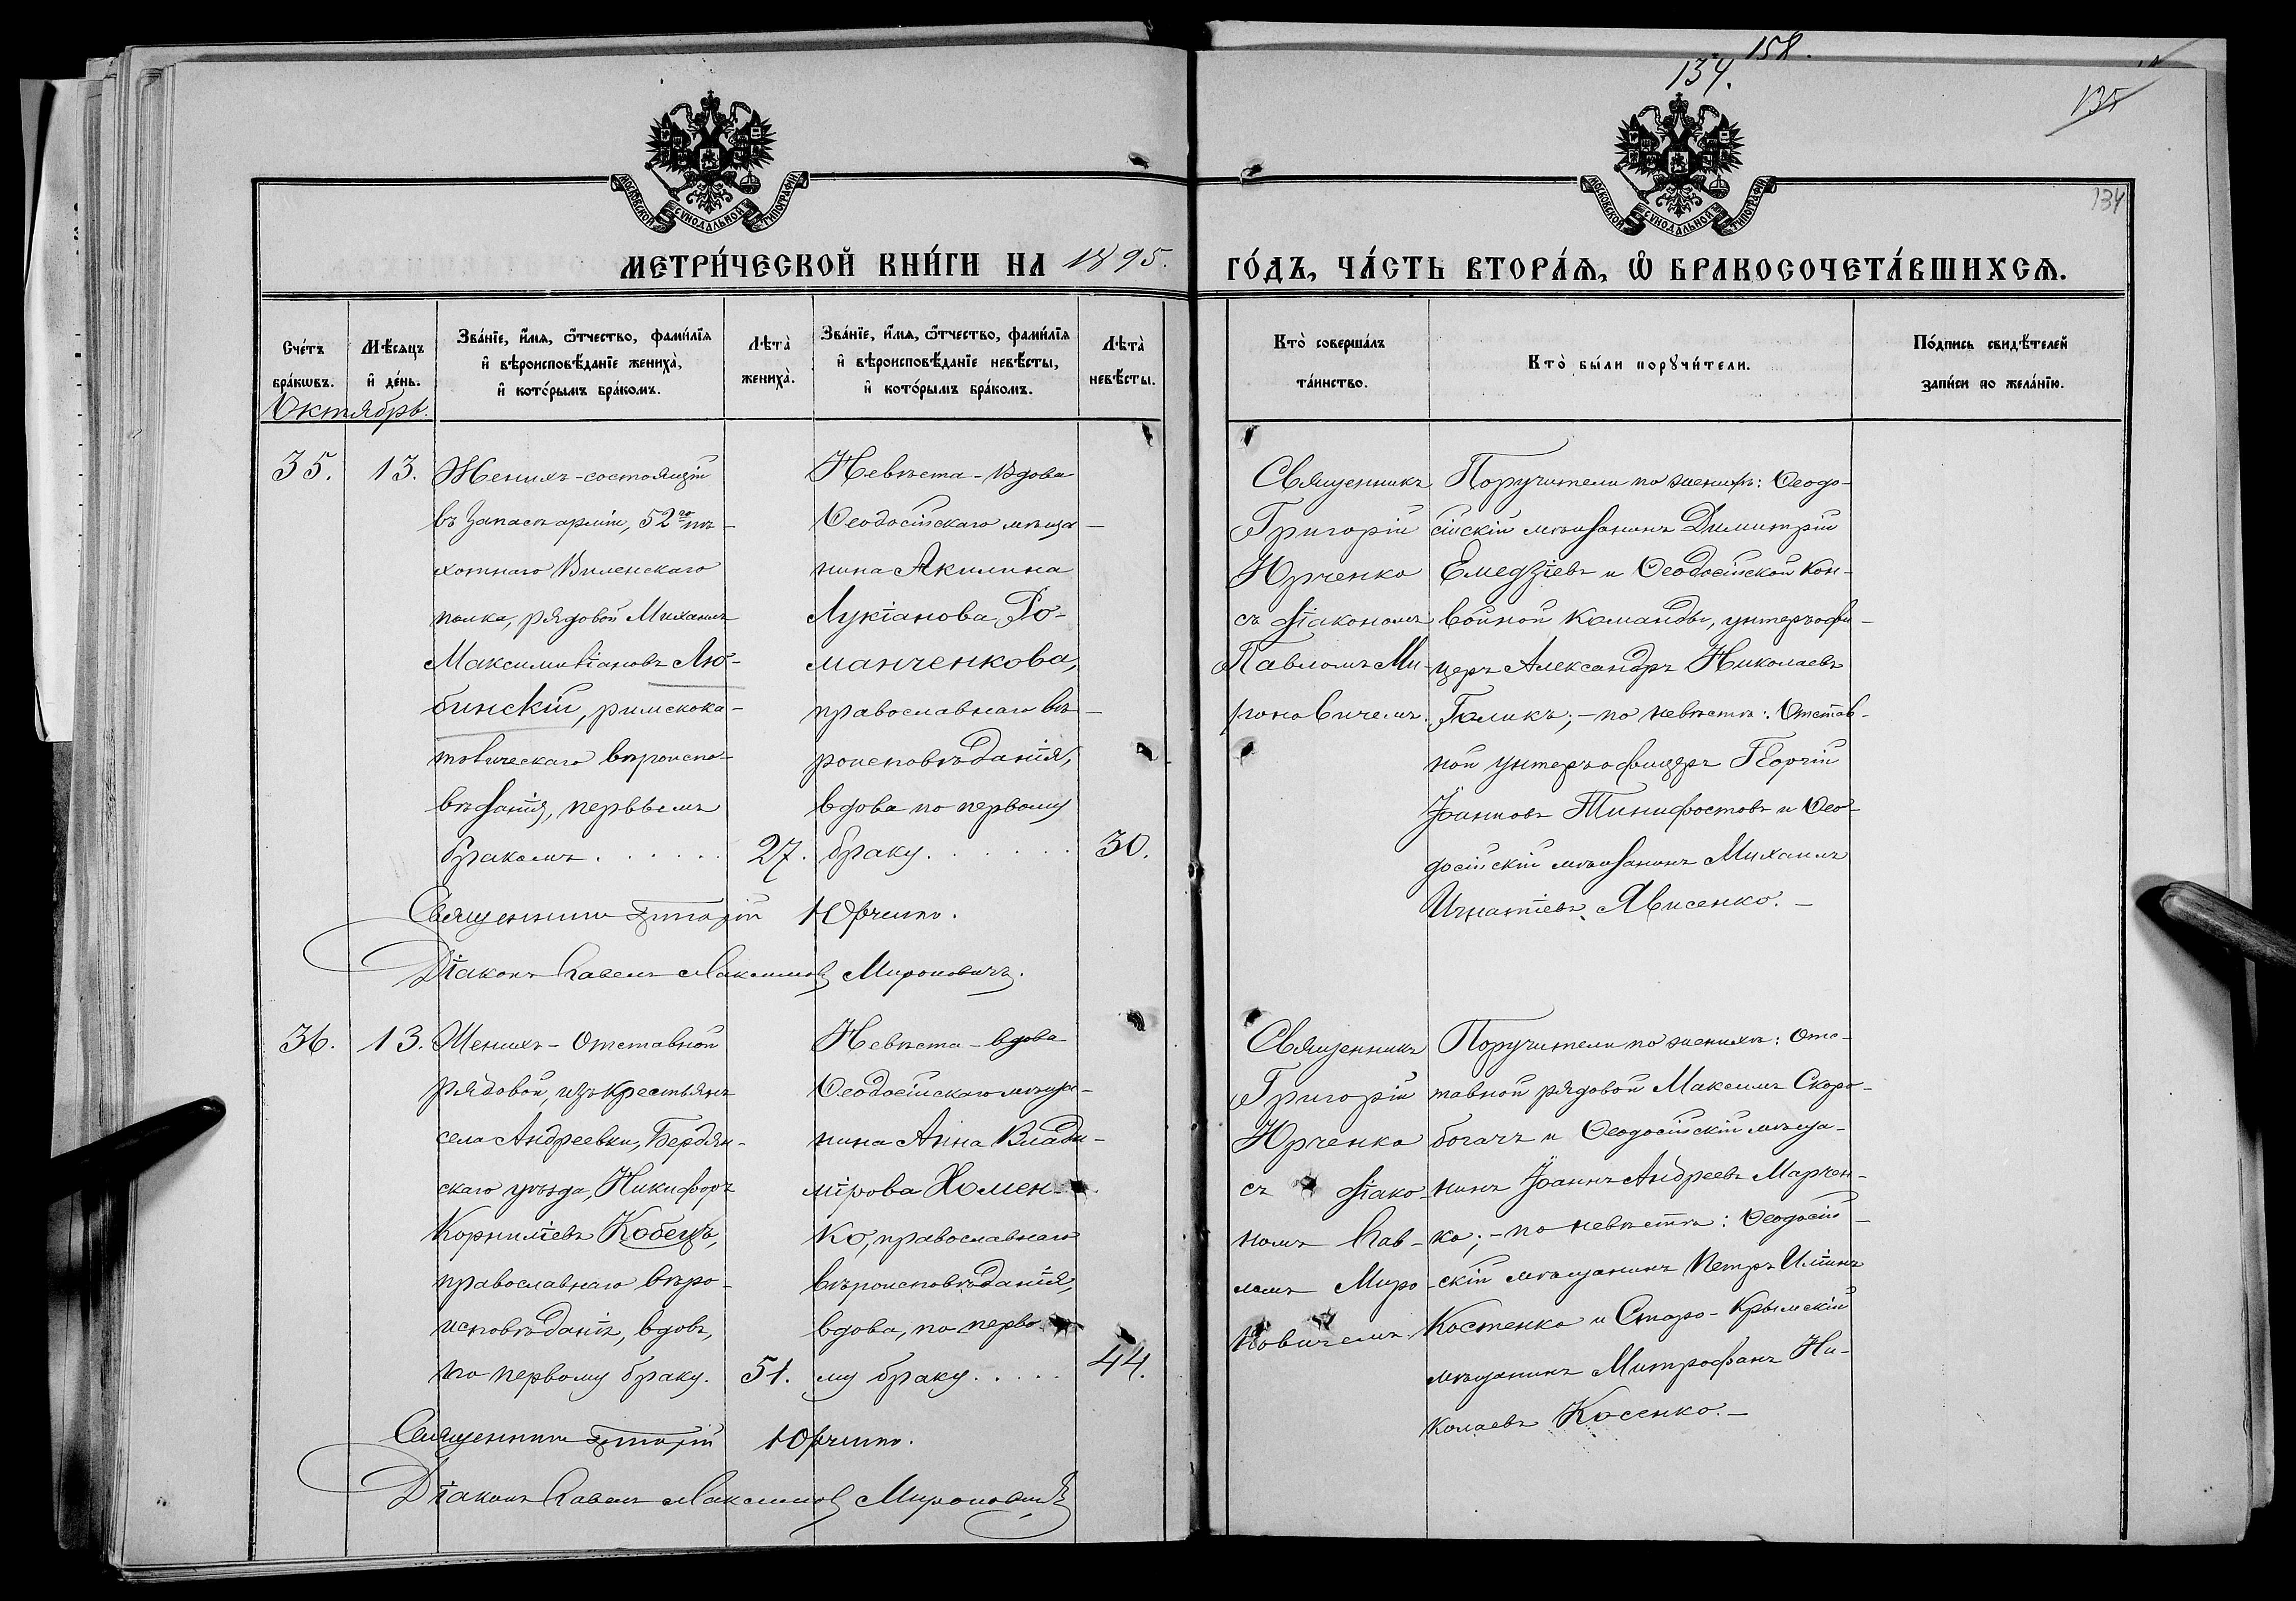 158.
134.
135
134
МОСКОВСКОЙ СѴНОДАЛЬНОЙ ТИПОГРАФІИ
МОСКОВСКОЙ СѴНОДАЛЬНОЙ ТИПОГРАФІИ
МЕТРИ́ЧЕСКОЙ КНИ́ГИ НА 1895.
ГО́ДЪ, ЧА́СТЬ ВТОРА́Ѧ, Ѽ БРАКОСОЧЕТА́ВШИХСѦ.
Сче́тъ
бра́кѡвъ.
Мѣ́сяцъ
и҆ де́нь.
Зва́нїе, и҆́мя, ѻ҆́тчество, фами́лїя
и҆ вѣроисповѣ́данїе жениха̀,
и҆ кото́рымъ бра́комъ.
Лѣта̀
жениха̀.
Зва́нїе, и҆́мя, ѻ҆́тчество, фами́лїя
и҆ вѣроисповѣ́данїе невѣ́сты,
и҆ кото́рымъ бра́комъ.
Лѣта̀
невѣ́сты.
Кто̀ соверша́лъ
та́инство.
Кто̀ бы́ли порꙋчи́тели.
По́дпись свидѣ́телей
запи́си по жела́нїю.
Октябрь.
35.
13.
Женихъ - состоящій
въ запасѣ арміи, 52го пѣ-
хотнаго Виленскаго
полка, рядовой Михаилъ
Максимиліановъ Лю-
бинскій, римскока-
толическаго вѣроиспо-
вѣданія, первымъ
бракомъ . . . . . .
27.
Невѣста - вдова
Ѳеодосійскаго мѣща-
нина Акилина
Лукіанова Ро-
манченкова,
православнаго вѣ-
роисповѣданія,
вдова по первому
браку. . . . . .
30.
Священникъ
Григорій
Юрченко
съ діакономъ
Павломъ Ми-
роновичемъ.
Поручители по женихѣ: Ѳеодо-
сійскій мѣщанинъ Димитрій
Емедзіевъ и Ѳеодосійской кон-
войной команды, унтеръ-офи-
церъ Александръ Николаевъ
Голикъ; - по невѣстѣ: Отстав-
ной унтеръ-офицеръ Георгій
Іоанновъ Тинифостовъ и Ѳео-
досійскій мѣщанинъ Михаилъ
Игнатіевъ Явисенко. -
Священникъ Григорій Юрченко.
Діаконъ Павелъ Максимовъ Мироновичъ.
36.
13.
Женихъ - Отставной
рядовой, изъ крестьянъ
села Андреевки, Бердян-
скаго уѣзда, Никифоръ
Корниліевъ Кобецъ,
православнаго вѣро-
исповѣданія, вдовъ,
по первому браку.
51.
Невѣста - вдова
Ѳеодосійскаго мѣща-
нина Анна Влади-
мірова Хомен-
ко, православнаго
вѣроисповѣданія,
вдова, по перво-
му браку . . . . .
44.
Священникъ
Григорій
Юрченко
съ діако-
номъ Пав-
ломъ Миро-
новичемъ.
Поручители по женихѣ: Отс-
тавной рядовой Максимъ Скоро-
богачъ и Ѳеодосійскій мѣща-
нинъ Іоаннъ Андреевъ Марчен-
ко; - по невѣстѣ: Ѳеодосій-
скій мѣщанинъ Петръ Ильинъ
Костенко и Старо-Крымскій
мѣщанинъ Митрофанъ Ни-
колаевъ Косенко. -
Священникъ Григорій Юрченко.
Діаконъ Павелъ Максимовъ Мироновичъ